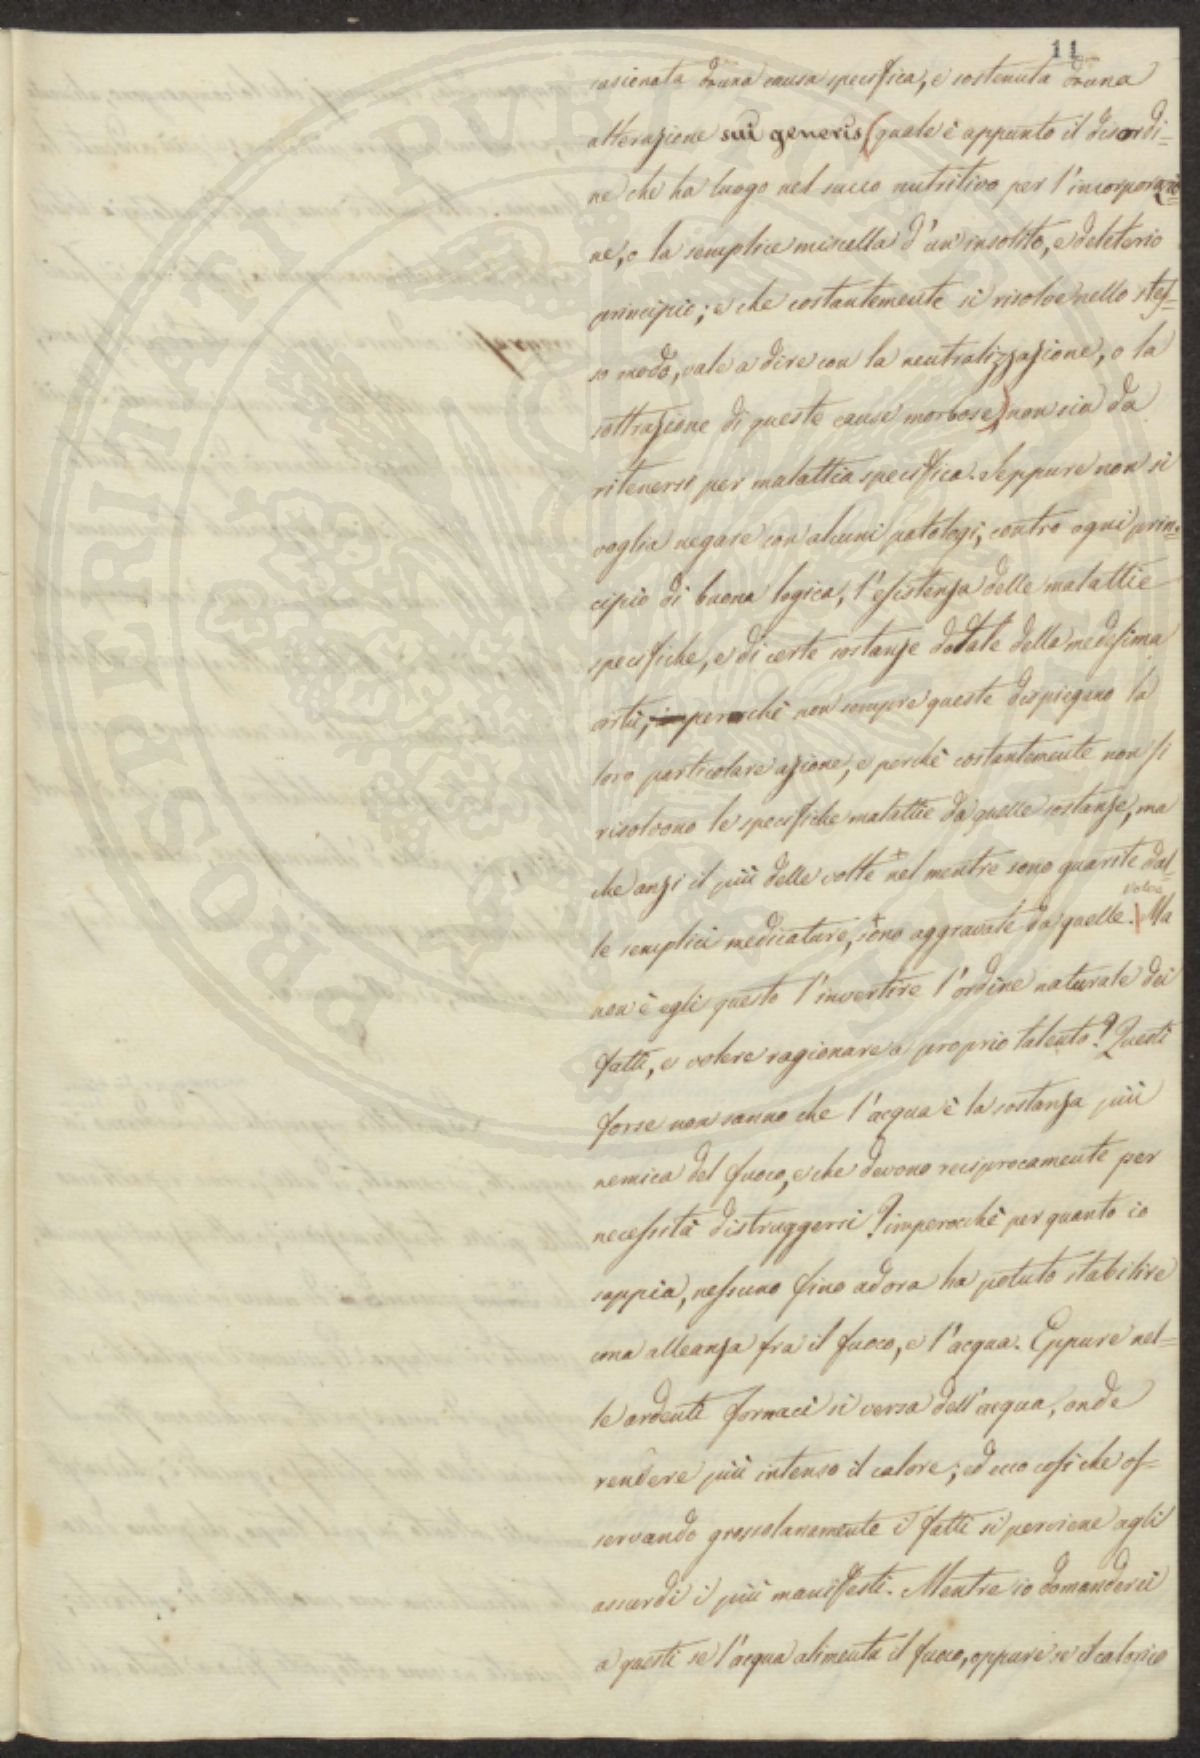 11
casionata da una causa specifica, e sostenuta da una
alterazione sui generis (quale è appunto il disordi=
ne che ha luogo nel succo nutritivo per l'incorporazio=
ne, o la semplice miscella d'un insolito, e deleterio
principio; e che costantemente si risolve nello stes=
so modo, vale a dire con la neutralizzazione, o la
sottrazione di queste cause morbose) non sia da
ritenersi per malattia specifica. Seppure non si
voglia negare con alcuni patologi, contro ogni prin=
cipio di buona logica, l'esistenza delle malattie
specifiche, e di certe sostanze dotate della medesima
virtù; perchè non sempre queste dispiegano la
loro particolare azione, e perchè costantemente non si
risolvono le specifiche malattie da quelle sostanze, ma
che anzi il più delle volte + nel mentre sono guarite dal=
le semplici medicature, + sono aggravate da quelle. Ma
non è egli questo l'invertire l'ordine naturale dei
fatti, e volere ragionare a proprio talento? Questi
forse non sanno che l'acqua è la sostanza più
nemica del fuoco, e che devono reciprocamente per
necessità distruggersi? imperocchè per quanto io
sappia, nessuno fino ad ora ha potuto stabilire
una alleanza fra il fuoco, e l'acqua. Eppure nel=
le ardenti fornaci si versa dell'acqua, onde
rendere più intenso il calore; ed ecco così che os=
servando grossolanamente i fatti si perviene agli
assurdi i più manifesti. Mentre io domanderei
a questi se l'acqua alimenta il fuoco, oppure se il calorico
PROSPERITATI PUBLICAE